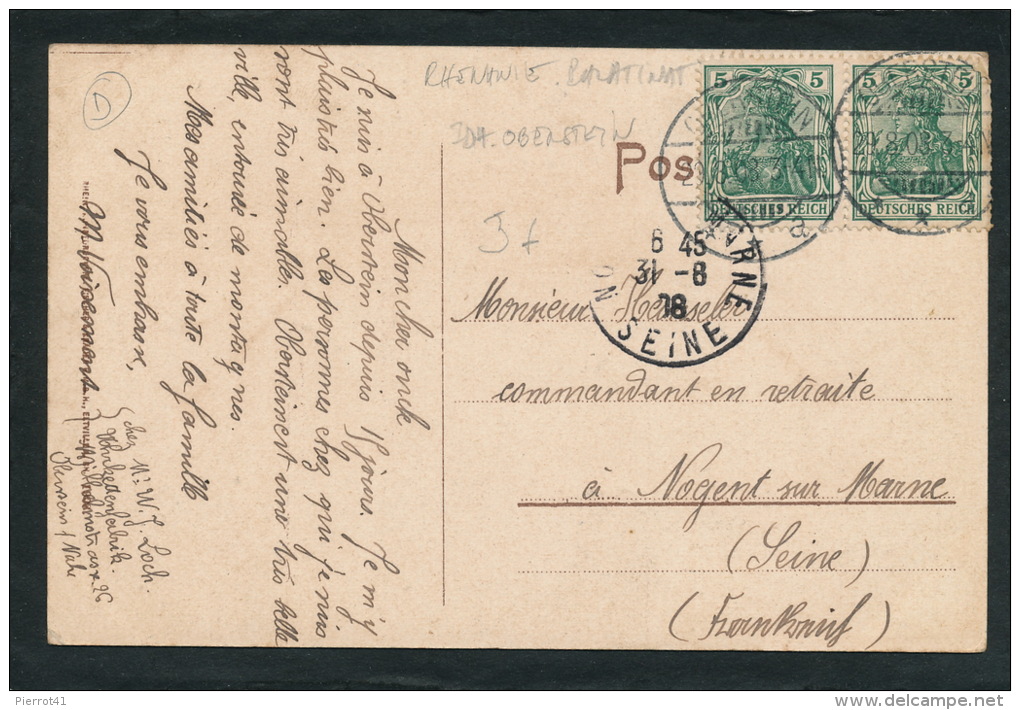 Mon cher oncle
Je suis à Oberstein depuis 4 jours. Je m'y
plus très bien. Les personnes chez qui je suis
sont très aimable. Oberstein est une très belle
ville, entouré de montagnes.
Mes amitiés à toute la famille
Je vous embrasse,
chez Mr W. J. Loch.
Oberstein / Nahe
RHENANIE . PALATINAT
IDA. OBERSTEIN
D
Pos
5
DEUTSCHES REICH
5
DEUTSCHES REICH
6 45
31 -8
08
MARNE
SEINE
Monsieur
commandant en retraite
à Nogent sur Marne
(Seine)
(Frankreich)
Pierrot41
delcampe.net